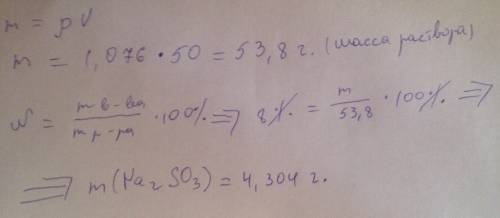 m = ρV
m = 1,076 · 50 = 53,8 г. (масса раствора)
ω = m в-ва / m р-ра · 100% ⇒ 8% = m / 53,8 · 100% ⇒
⇒ m(Na₂SO₃) = 4,304 г.